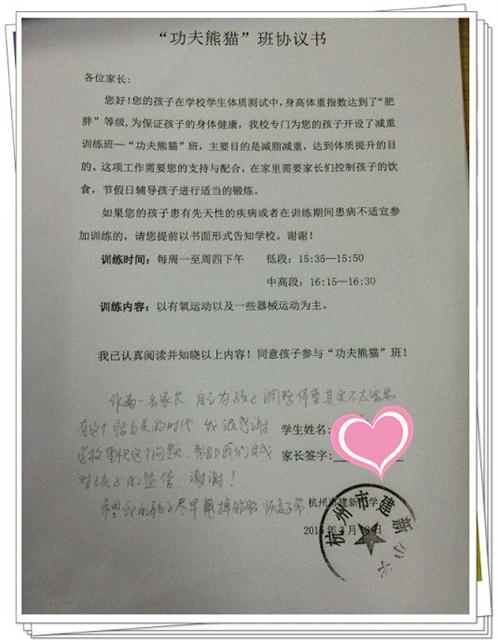 “功夫熊猫”班协议书
各位家长:
您好!您的孩子在学校学生体质测试中,身高体重指数达到了“肥
胖”等级,为保证孩子的身体健康,我校专门为您的孩子开设了减重
训练班—“功夫熊猫”班,主要目的是减脂减重,达到体质提升的目
的。这项工作需要您的支持与配合,在家里需要家长们控制孩子的饮
食,节假日辅导孩子进行适当的锻炼。
如果您的孩子患有先天性的疾病或者在训练期间患病不适宜参
加训练的,请您提前以书面形式告知学校。谢谢!
训练时间:每周一至周四下午 低段:15:35—15:50
中高段:16:15—16:30
训练内容:以有氧运动以及一些器械运动为主。
我已认真阅读并知晓以上内容!同意孩子参与“功夫熊猫”班!
作为一名家长,自己为孩子调整体重其实不太容易
在这个 的时代,我很感谢
学校重视这个问题,帮助我们完成
对孩子的监督,谢谢!
希望我的孩子尽早甩掉 恢复正常
学生姓名:
家长签字:
杭州市建新 学
201 年3月 日
杭州市建新小学